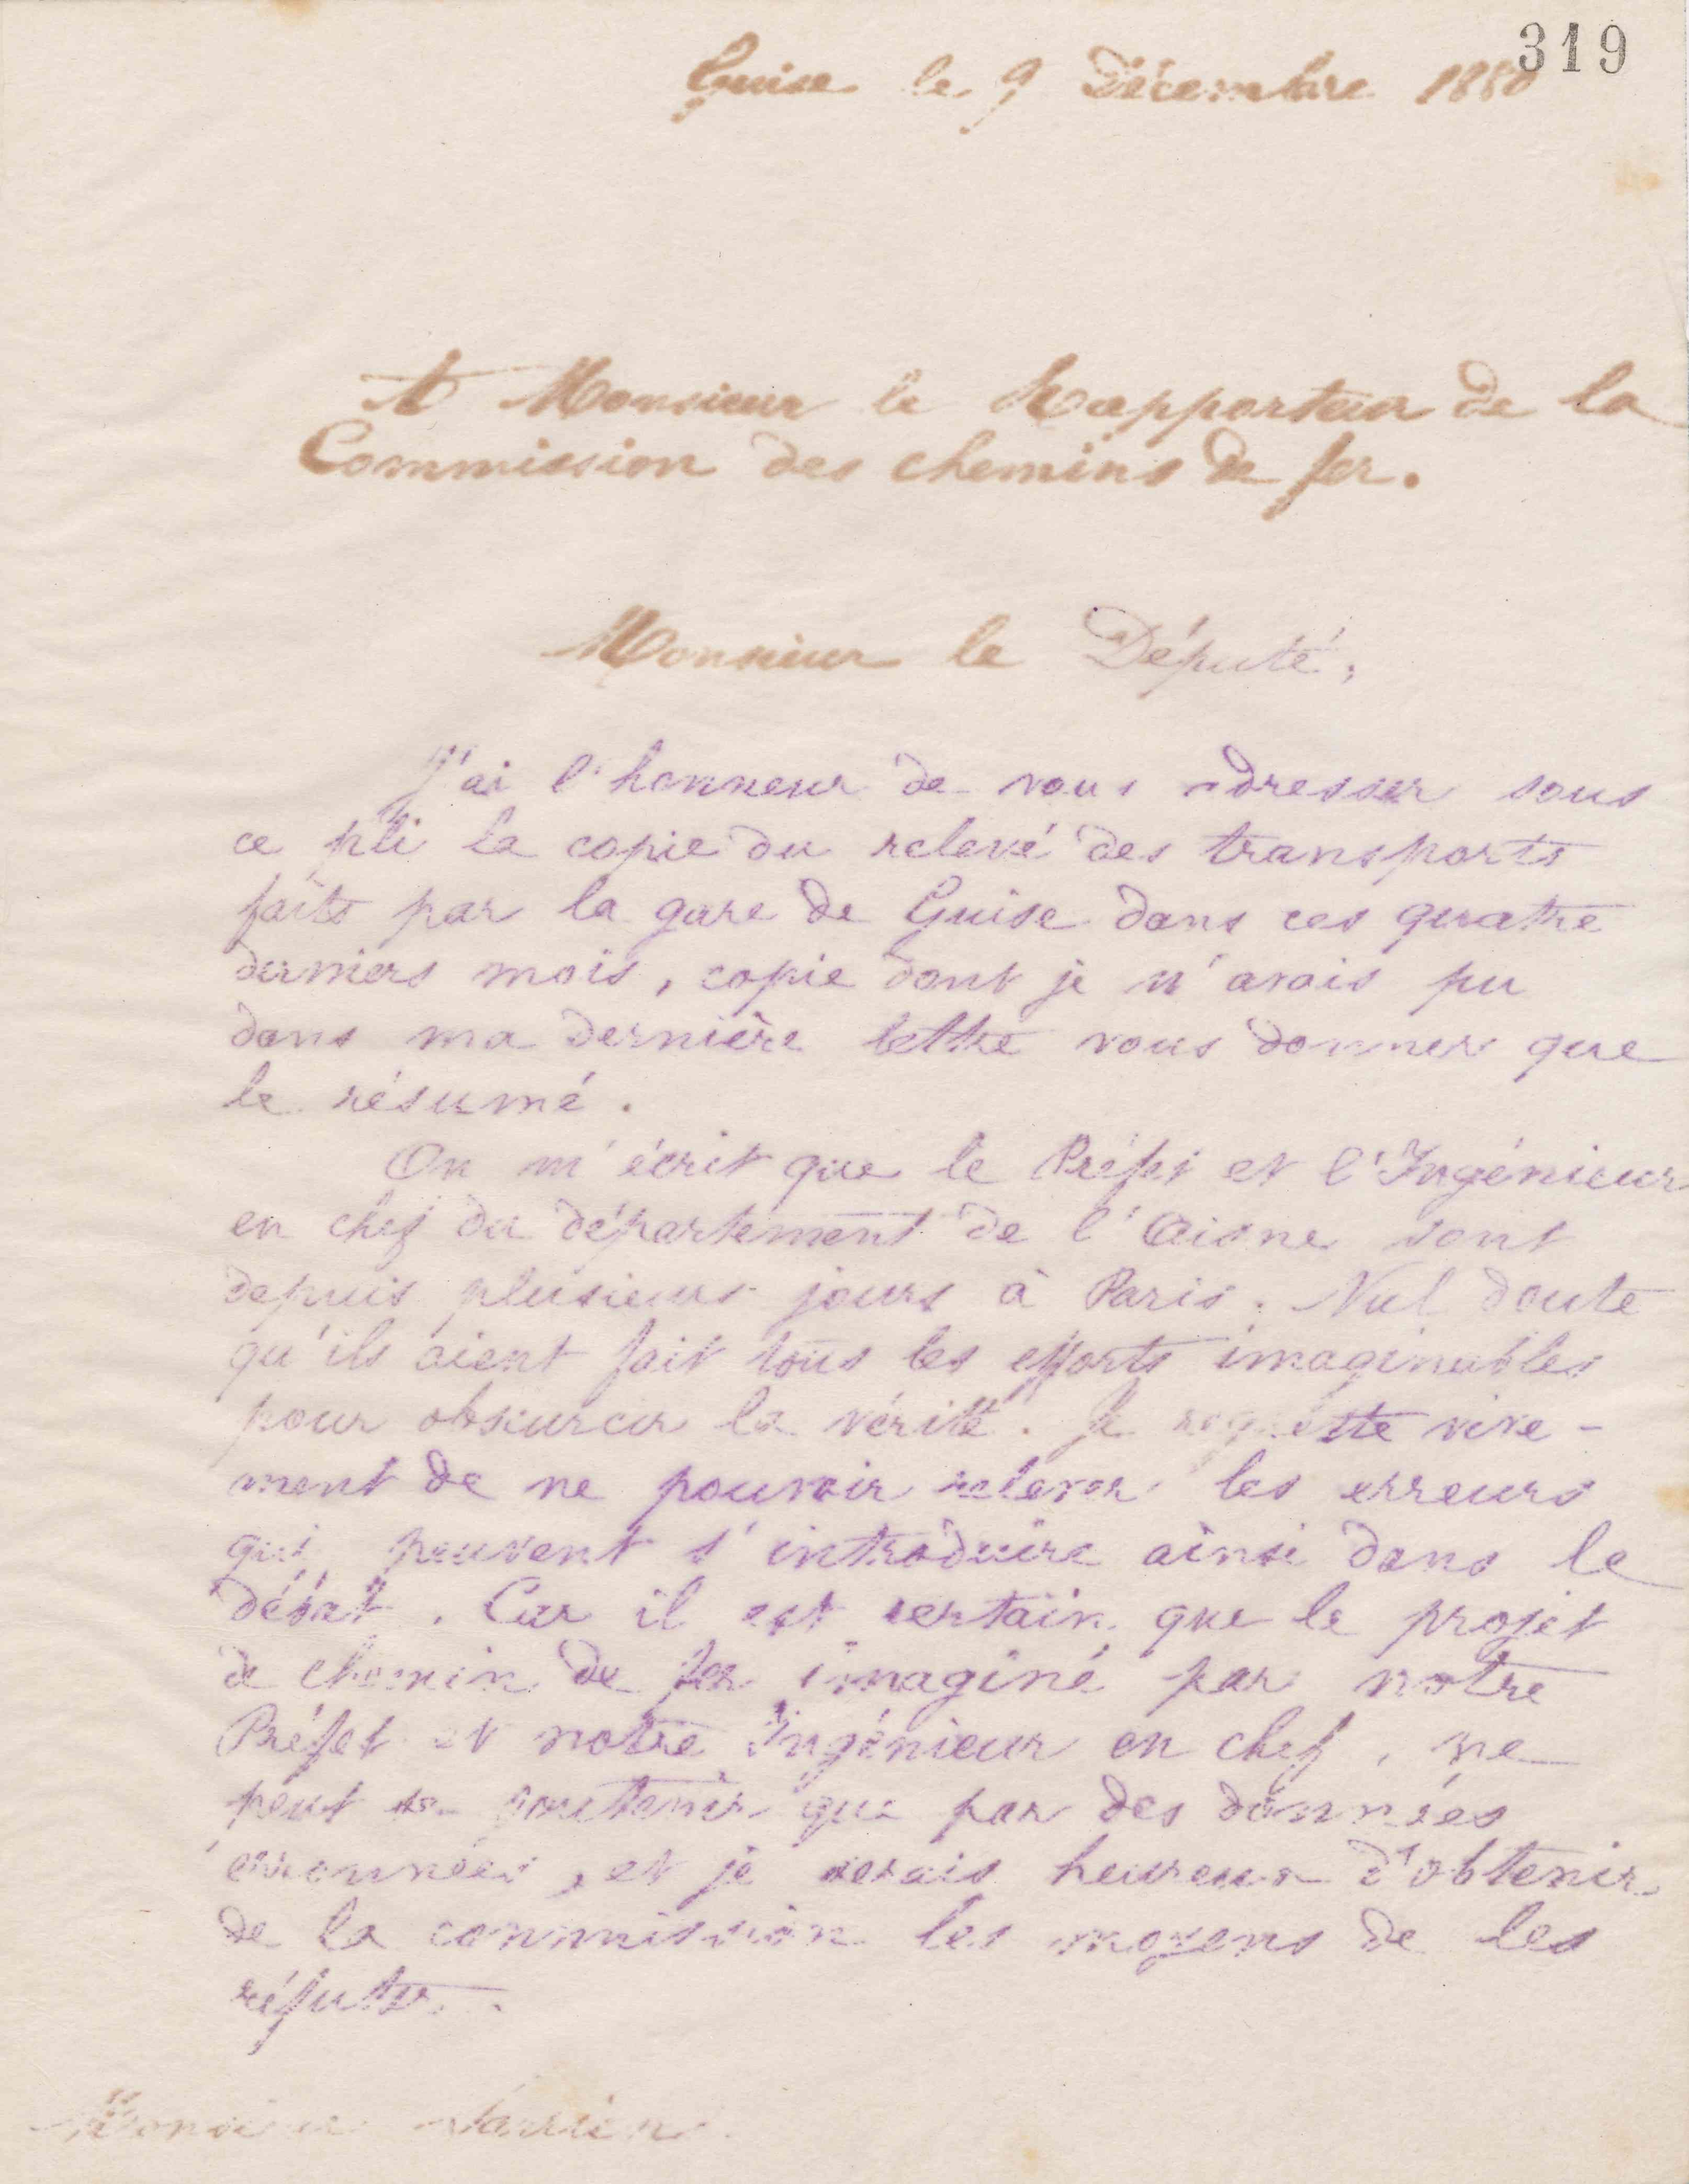 319
Guise le 9 Décembre 1880
A Monsieur le Rapporteur de la
Commission des chemins de fer.
Monsieur le Député,
J'ai l'honneur de vous adresser sous
ce pli la copie du relevé des transports
faits par la gare de Guise dans ces quatre
derniers mois, copie dont je n'avais pu
dans ma dernière lettre vous donner que
le résumé.
On m'écrit que le Préfet et l'Ingénieur
en chef du département de l'Aisne sont
depuis plusieurs jours à Paris. Nul doute
qu'ils aient fait tous les efforts imaginables
pour obscurcir la vérité. Je regrette vive-
ment de ne pouvoir relever les erreurs
qui peuvent s'introduire ainsi dans le
débat. Car il est certain que le projet
de chemin de fer imaginé par notre
Préfet et notre Ingénieur en chef, ne
peut se soutenir que par des données
erronnées, et je serais heureux d'obtenir
de la commission les moyens de les
réfuter.
Monsieur